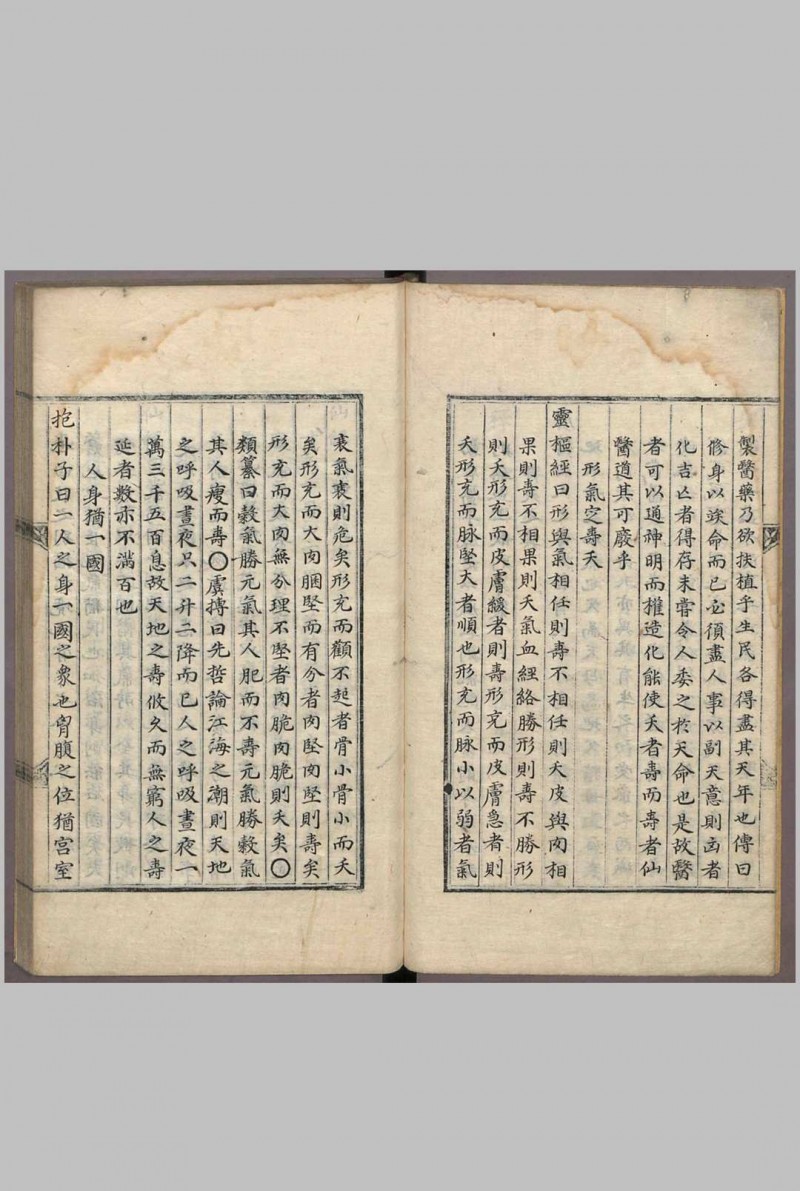 製醫藥乃欲扶植乎生民各得盡其天年也傳曰
修身以竢命而已必須盡人事以副天意則凶者
化吉亡者得存未嘗令人委之於天命也是故醫
者可以通神明而權造化能使夭者壽而壽者仙
醫道其可廢乎
形氣定壽夭
靈樞經曰形與氣相任則壽不相任則夭皮與肉相
果則壽不相果則夭氣血經絡勝形則壽不勝形
則夭形充而皮膚緩者則壽形充而皮膚急者則
夭形充而脉堅大者順也形充而脉小以弱者氣
衰氣衰則危矣形充而顴不起者骨小骨小而夭
矣形充而大肉䐃堅而有分者肉堅肉堅則壽矣
形充而大肉無分理不堅者肉脆肉脆則夭矣〇
類纂曰穀氣勝元氣其人肥而不壽元氣勝穀氣
其人瘦而壽〇虞摶曰先哲論江海之潮則天地
之呼吸晝夜只二升二降而已人之呼吸晝夜一
萬三千五百息故天地之壽攸久而無窮人之壽
延者數亦不滿百也
人身猶一國
抱朴子曰一人之身一國之衆也胷腹之位猶宮室